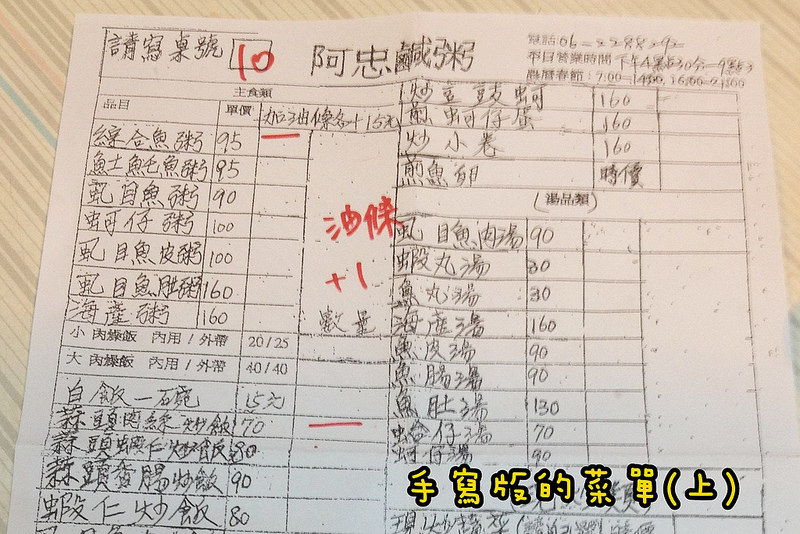 請寫桌號 10
阿忠鹹粥
電話06-2288292
平日營業時間下午4點30分-9點
農曆春節:7:00-14:00,16:00-21:00
主食類
品目 單價 加油條各+15元
綜合魚粥 95
魠魠魚粥 95
虱目魚粥 90
蚵仔粥 100
虱目魚皮粥 100
虱目魚肚粥 160
海產粥 160
油條
+1
數量
小 肉燥飯 內用/外帶 20/25
大 肉燥飯 內用/外帶 40/40
白飯一碗 15元
蒜頭肉絲炒飯 70
蒜頭蝦仁炒飯 80
蒜頭香腸炒飯 90
蝦仁炒飯 80
炒豆豉蚵 160
煎蚵仔蛋 160
炒小卷 160
煎魚卵 時價
(湯品類)
虱目魚肉湯 90
蝦丸湯 30
魚丸湯 30
海產湯 160
魚皮湯 90
魚腸湯 90
魚肚湯 130
蛤仔湯 70
蚵仔湯 90
手寫版的菜單(上)